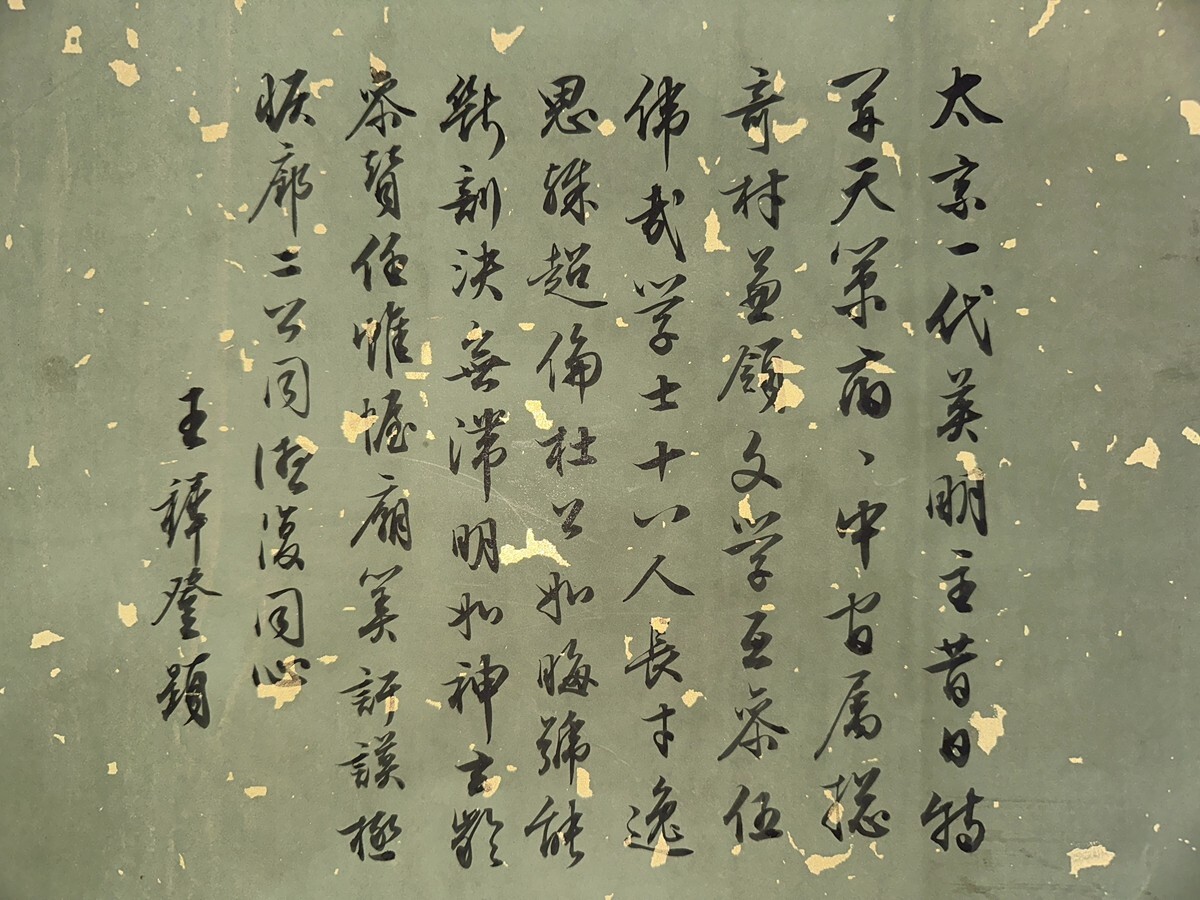 太宗一代英明主昔日特
開天策府、中官属總
奇材兼領文學互參伍
偉哉學士十八人長才逸
思殊超倫杜公如晦號能
斷剖決無滯明如神玄齡
參贊任帷幄廟筭訏謨極
恢廓二公同德復同心
王穉登題